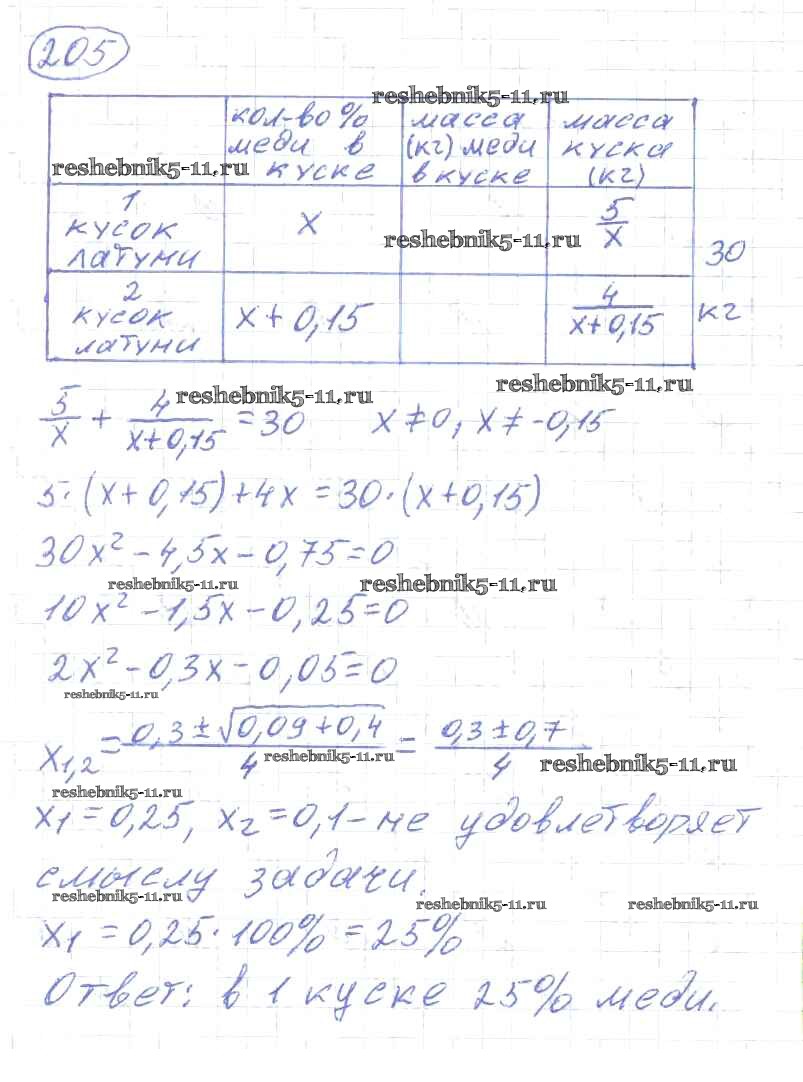 205
reshebnik5-11.ru
кол-во % меди в куске
масса (кг) меди в куске
масса куска (кг)
reshebnik5-11.ru
1 кусок латуни
x
5/x
reshebnik5-11.ru
30 кг
2 кусок латуни
x + 0,15
4/(x+0,15)
reshebnik5-11.ru
reshebnik5-11.ru
5/x + 4/(x+0,15) = 30    x ≠ 0, x ≠ -0,15
5·(x + 0,15) + 4x = 30·(x+0,15)
30x² - 4,5x - 0,75 = 0
reshebnik5-11.ru
reshebnik5-11.ru
10x² - 1,5x - 0,25 = 0
2x² - 0,3x - 0,05 = 0
reshebnik5-11.ru
x₁,₂ = (0,3 ± √(0,09 + 0,4))/4 = (0,3 ± 0,7)/4
reshebnik5-11.ru
reshebnik5-11.ru
reshebnik5-11.ru
x₁ = 0,25, x₂ = 0,1 - не удовлетворяет
смыслу задачи.
reshebnik5-11.ru
reshebnik5-11.ru
reshebnik5-11.ru
x₁ = 0,25 · 100% = 25%
Ответ: в 1 куске 25% меди.